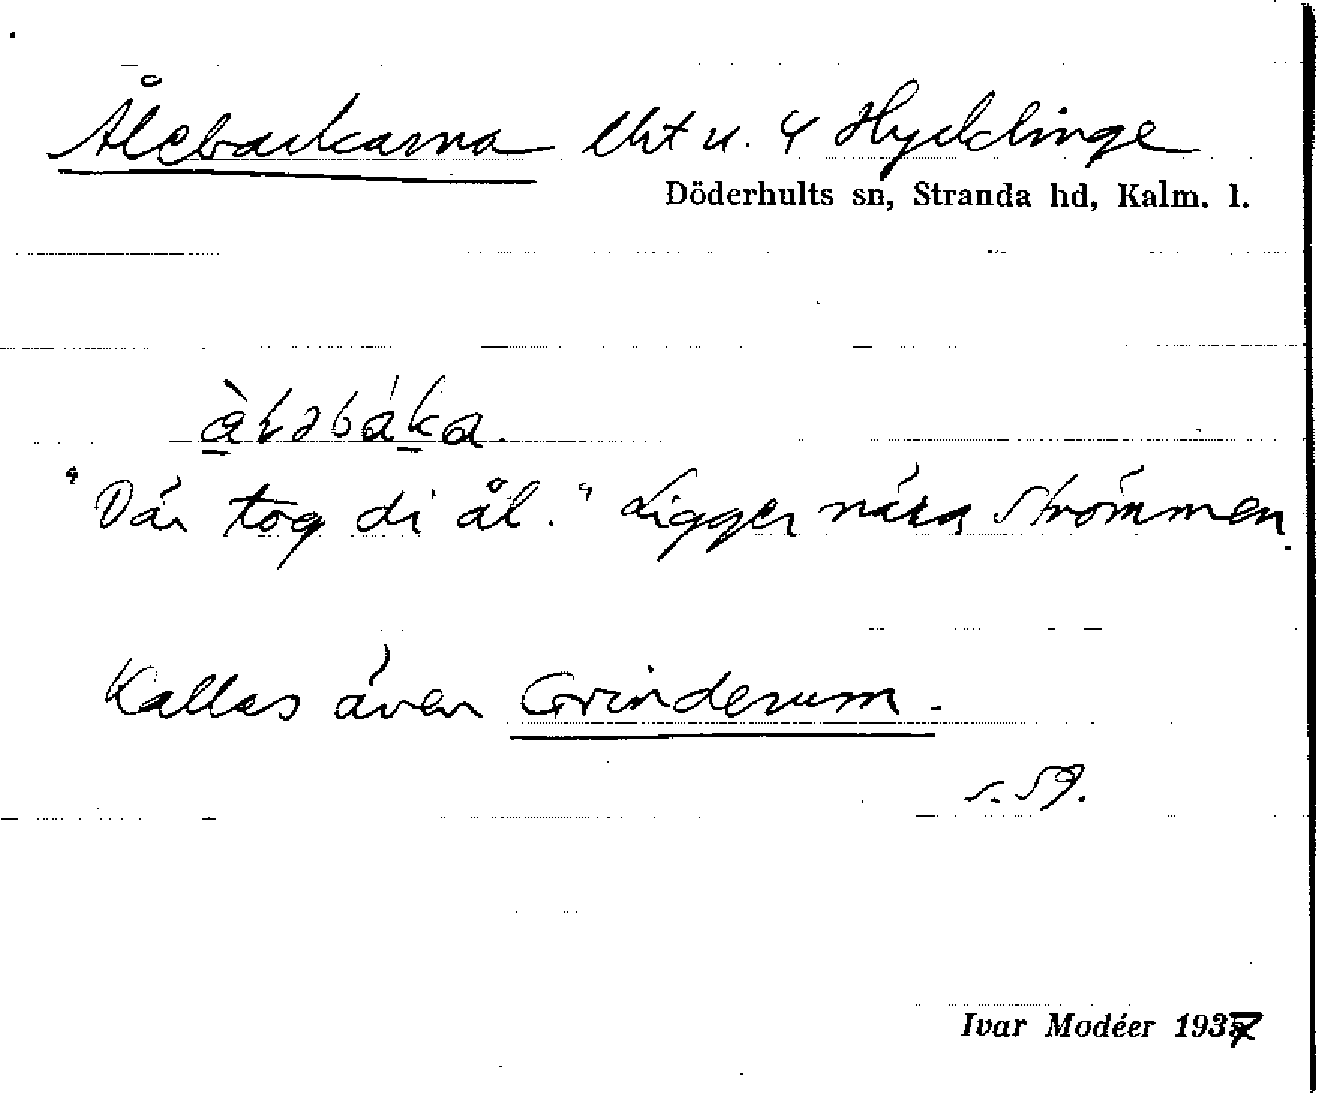 Ålebackarna lht u. 4 Hycklinge
Döderhults sn, Stranda hd, Kalm. l.
"Där tog di ål." Ligger nära Strömmen.
Kallas även Grinderum.
s. 59.
Ivar Modéer 1937